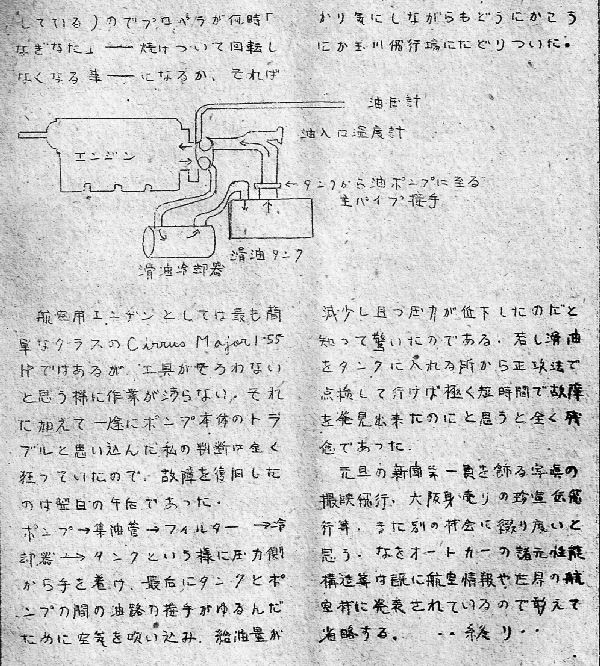 している)のでプロペラが何時「
なぎなた」── 焼けついて回転し
なくなる事 ── になるか、それば
かり気にしながらもどうにかこう
にか玉川飛行場にたどりついた。
油圧計
油入口温度計
エンジン
タンクから油ポンプに至る
主パイプ接手
滑油タンク
滑油冷却器
航空用エンヂンとしては最も簡
単なクラスのCirrus Major 155
IPではあるが、工具が揃わない
と思う様に作業が渉らない。それ
に加えて一途にポンプ本体のトラ
ブルと思い込んだ私の判断は全く
狂っていたので、故障を復旧した
のは翌日の午后であった。
ポンプ→集油管→フィルター→冷
却器→タンクという様に圧力側
から手を着け、最后にタンクとポ
ンプの間の油路の接手がゆるんだ
ために空気を吸い込み、給油量が
減少し且つ圧力が低下したのだと
知って驚いたのである。若し滑油
をタンクに入れる所から正攻法で
点検して行けば極く短時間で故障
を発見出来たのにと思うと全く残
念であった。
元旦の新聞第一頁を飾る写真の
撮映飛行、大阪身売りの珍宣伝飛
行等、また別の機会に綴り度いと
思う。なをオートカーの諸元性能
構造等は既に航空情報や世界の航
空機に発表されているので敢えて
省略する。 ‥終り‥